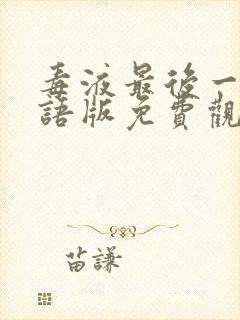 毒液最後一
語版免費觀
苗謙